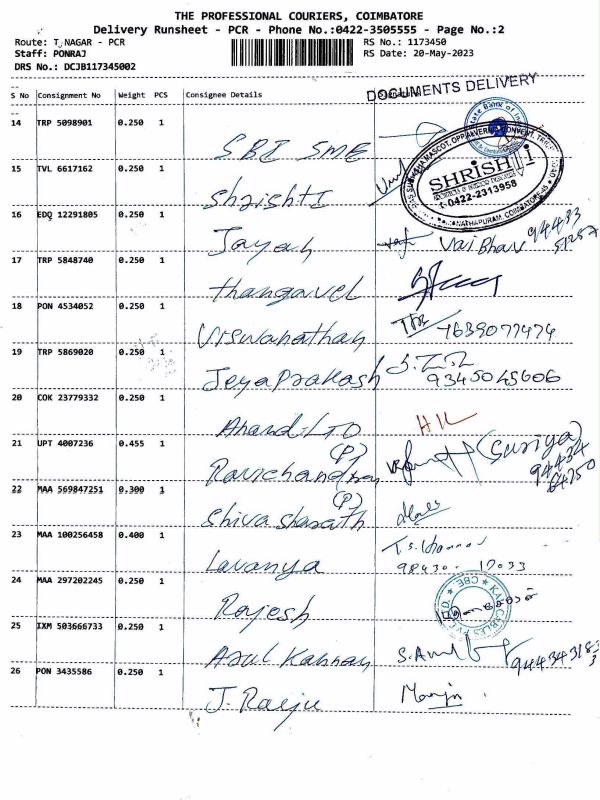 THE PROFESSIONAL COURIERS, COIMBATORE
Delivery Runsheet - PCR - Phone No.:0422-3505555 - Page No.:2
Route: T NAGAR - PCR RS No.: 1173450
Staff: PONRAJ RS Date: 20-May-2023
DRS No.: DCJB117345002
DOCUMENTS DELIVERY
S No Consignment No Weight PCS Consignee Details
14 TRP 5098901 0.250 1
SBI SME
15 TVL 6617162 0.250 1
SHRISHTI
0422-2313958
Shrishti
16 EDQ 12291805 0.250 1
Jayesh Vaibhav 94433
51257
17 TRP 5848740 0.250 1
Thangavel
18 PON 4534052 0.250 1
Viswanathan 7639077474
19 TRP 5869020 0.250 1
JeyaPrakash 9345045606
20 COK 23779332 0.250 1
Anand LTD HK
21 UPT 4007236 0.455 1
(P)
Ravichandran (Suriya)
94434
64750
22 MAA 569847251 0.300 1
(P)
Shiva sharath
23 MAA 100256458 0.400 1
Lavanya 98430-17033
24 MAA 297202245 0.250 1
Rajesh
25 IXM 503666733 0.250 1
Arul Kannan
26 PON 3435586 0.250 1
J. Raiju